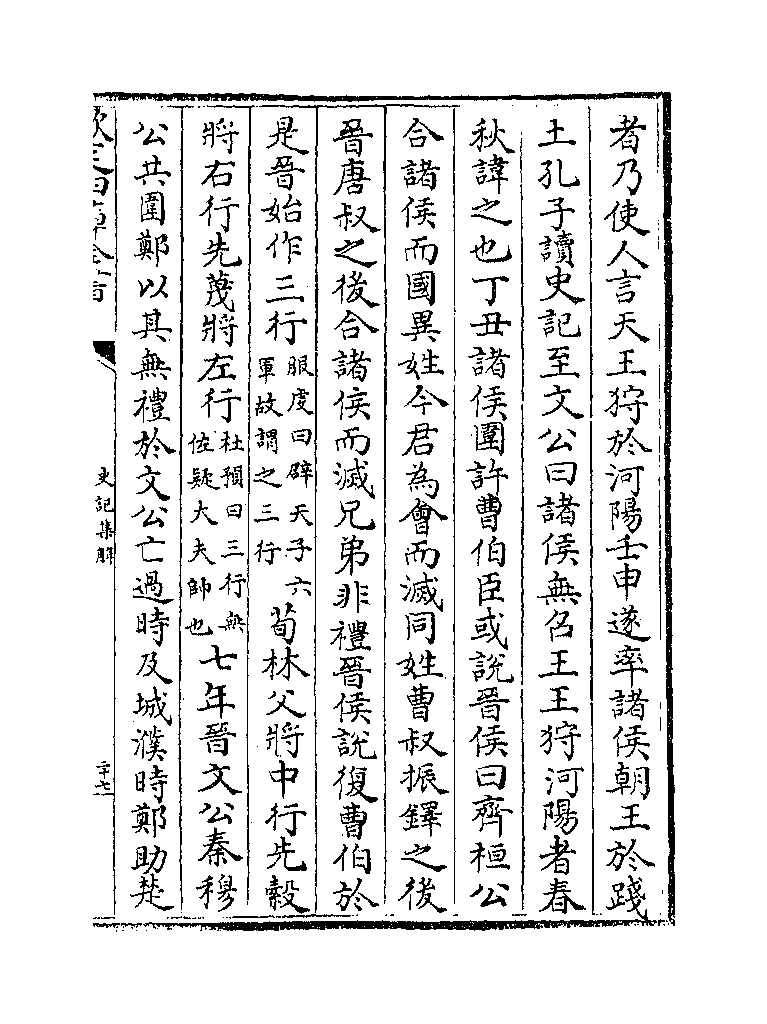 者乃使人言天王狩於河陽壬申遂率諸侯朝王於踐
土孔子讀史記至文公曰諸侯無召王王狩河陽者春
秋諱之也丁丑諸侯圍許曹伯臣或說晉侯曰齊桓公
合諸侯而國異姓今君為會而滅同姓曹叔振鐸之後
晉唐叔之後合諸侯而滅兄弟非禮晉侯說復曹伯於
是晉始作三行服虔曰辟天子六軍故謂之三行荀林父將中行先縠
將右行先蔑將左行杜預曰三行無佐疑大夫帥也七年晉文公秦穆
公共圍鄭以其無禮於文公亡過時及城濮時鄭助楚
欽定四庫全書
史記集解
二十七